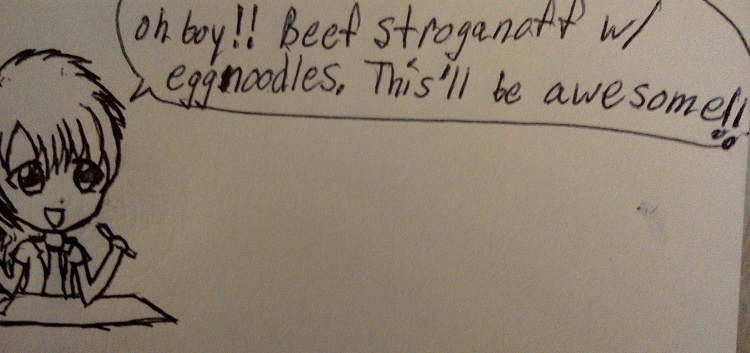 oh boy!! Beef stroganoff w/
eggnoodles. This'll be awesome!!